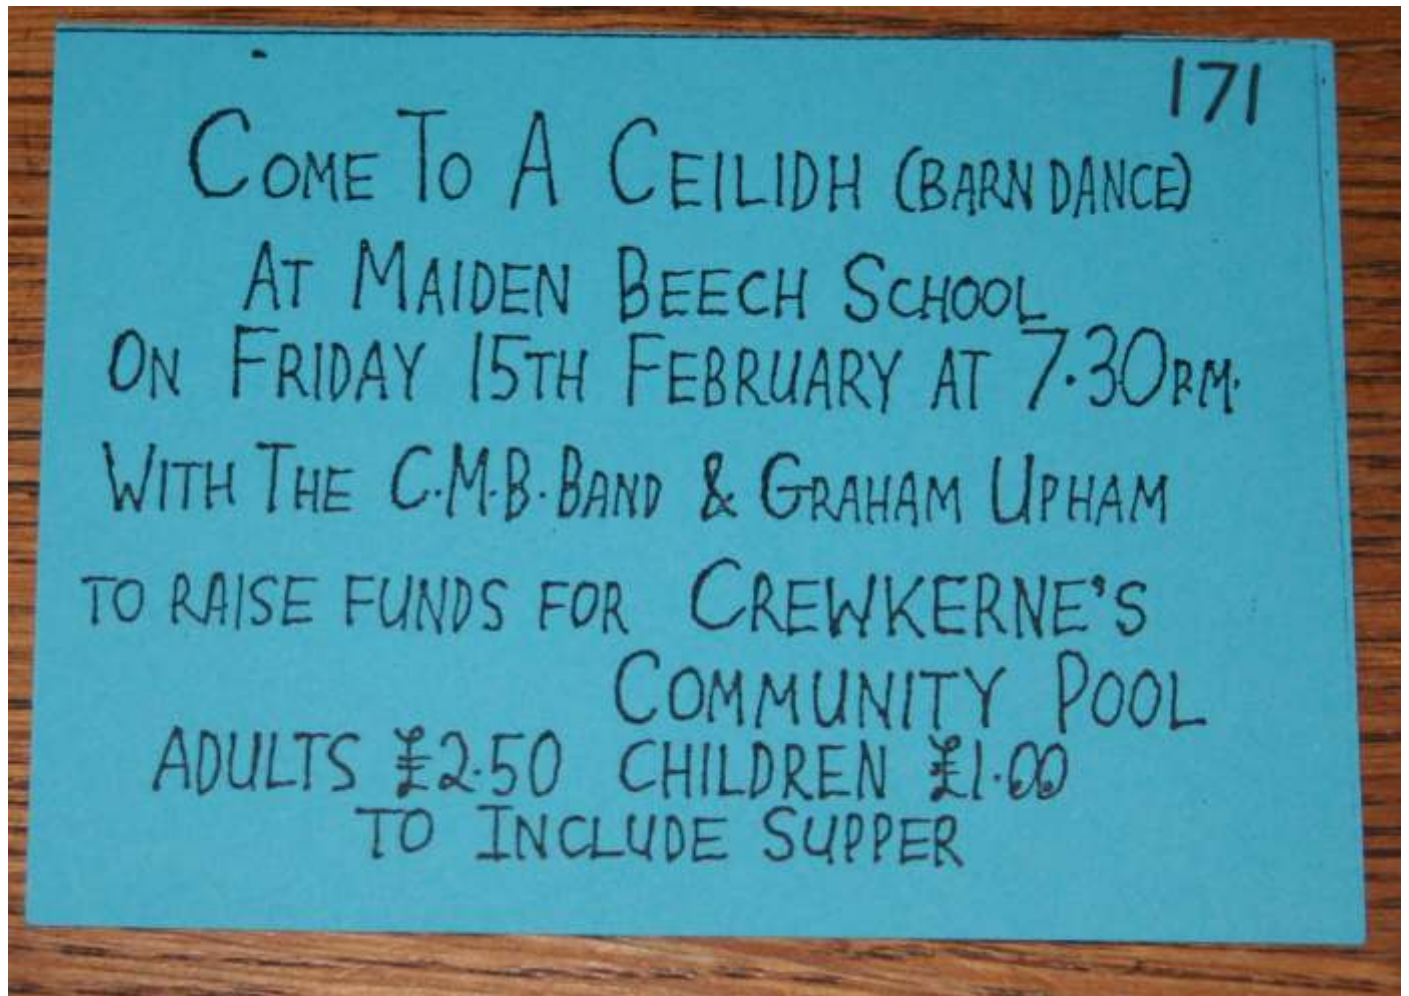 171
COME TO A CEILIDH (BARN DANCE)
AT MAIDEN BEECH SCHOOL
ON FRIDAY 15TH FEBRUARY AT 7.30P.M.
WITH THE C.M.B. BAND & GRAHAM UPHAM
TO RAISE FUNDS FOR CREWKERNE'S
COMMUNITY POOL
ADULTS £2.50 CHILDREN £1.00
TO INCLUDE SUPPER